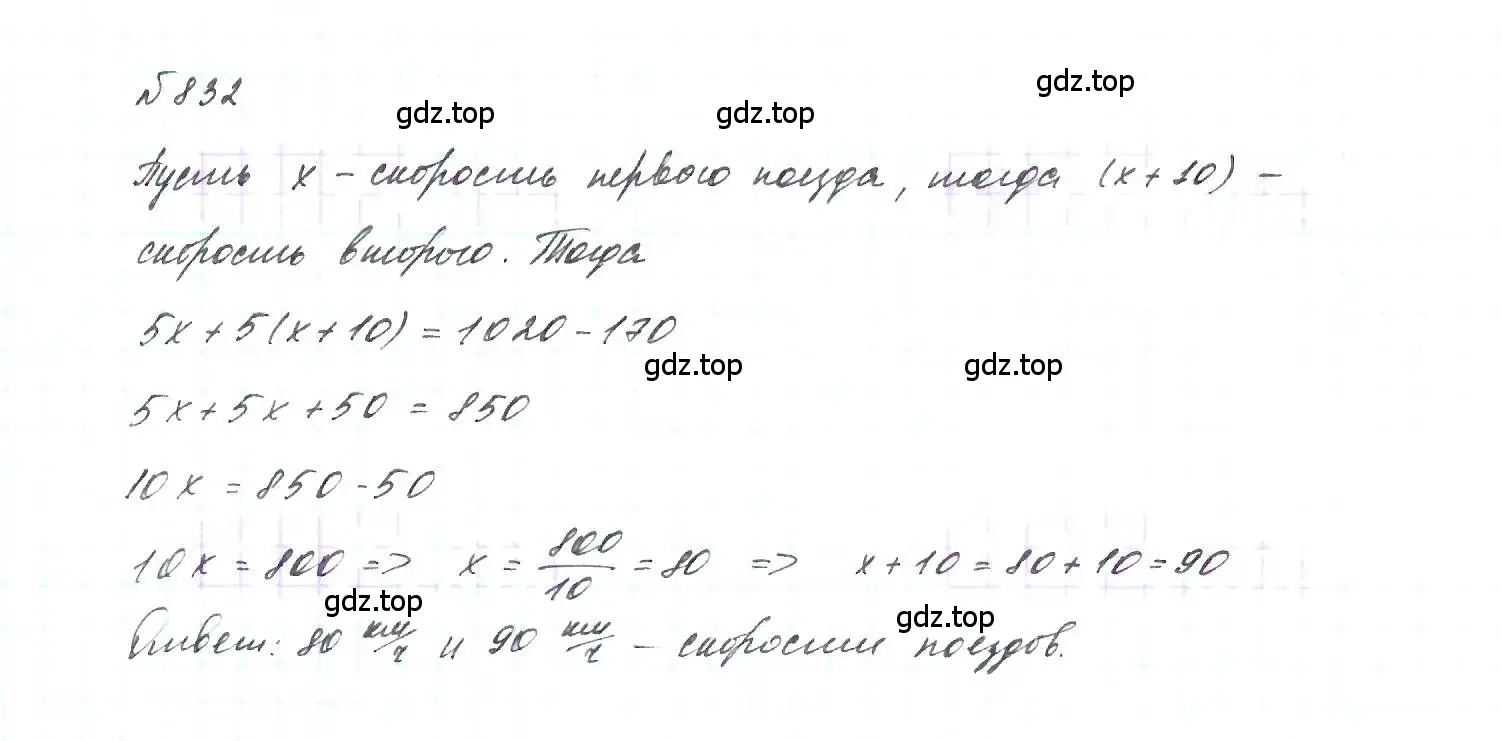 №832
gdz.top
gdz.top
gdz.top
Пусть x – скорость первого поезда, тогда (x+10) –
скорость второго. Тогда
5x+5(x+10)=1020-170
gdz.top
gdz.top
5x+5x+50=850
10x=850-50
10x=800 => x=800/10=80 => x+10=80+10=90
gdz.top
gdz.top
Ответ: 80 км/ч и 90 км/ч – скорости поездов.